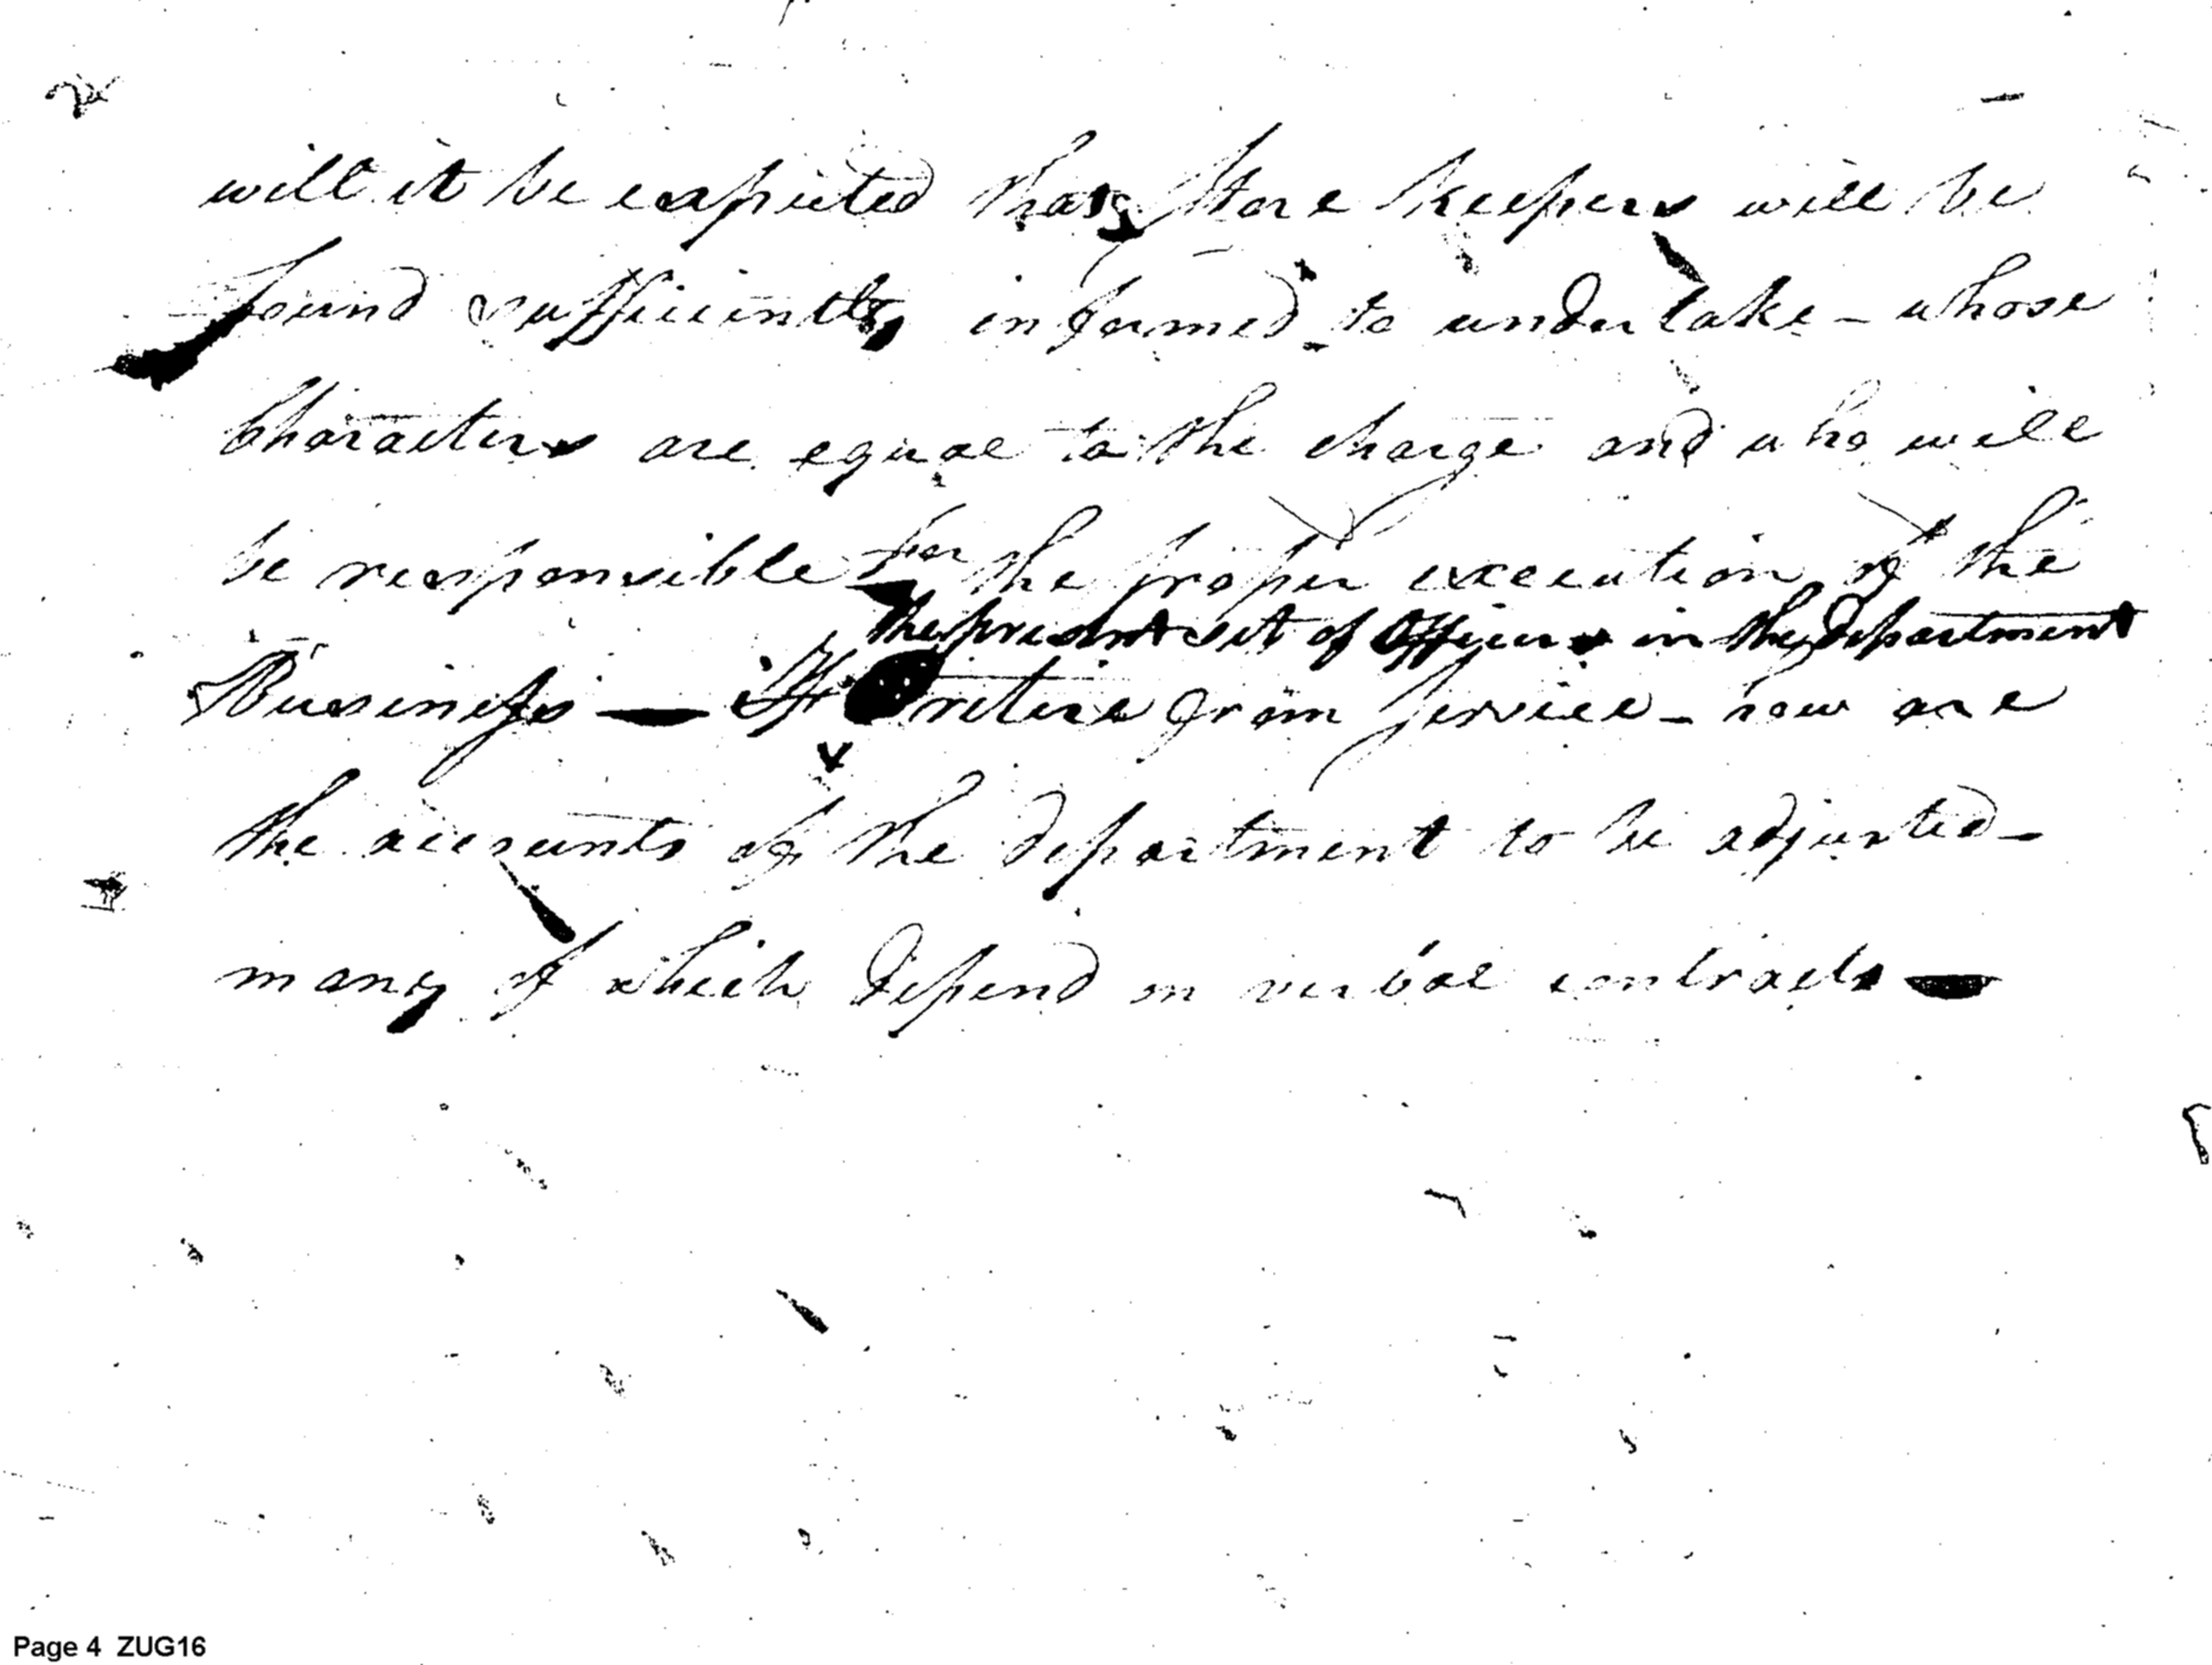 will it be expected that Store keepers will be
found sufficiently informed to undertake – whose
Characters are equal to the charge and who will
be responsible for the proper execution of the
the present set of Officers in the Department
Business — If retire from Service – how are
the accounts of the department to be adjusted –
many of which depend on verbal contracts —
Page 4 ZUG16